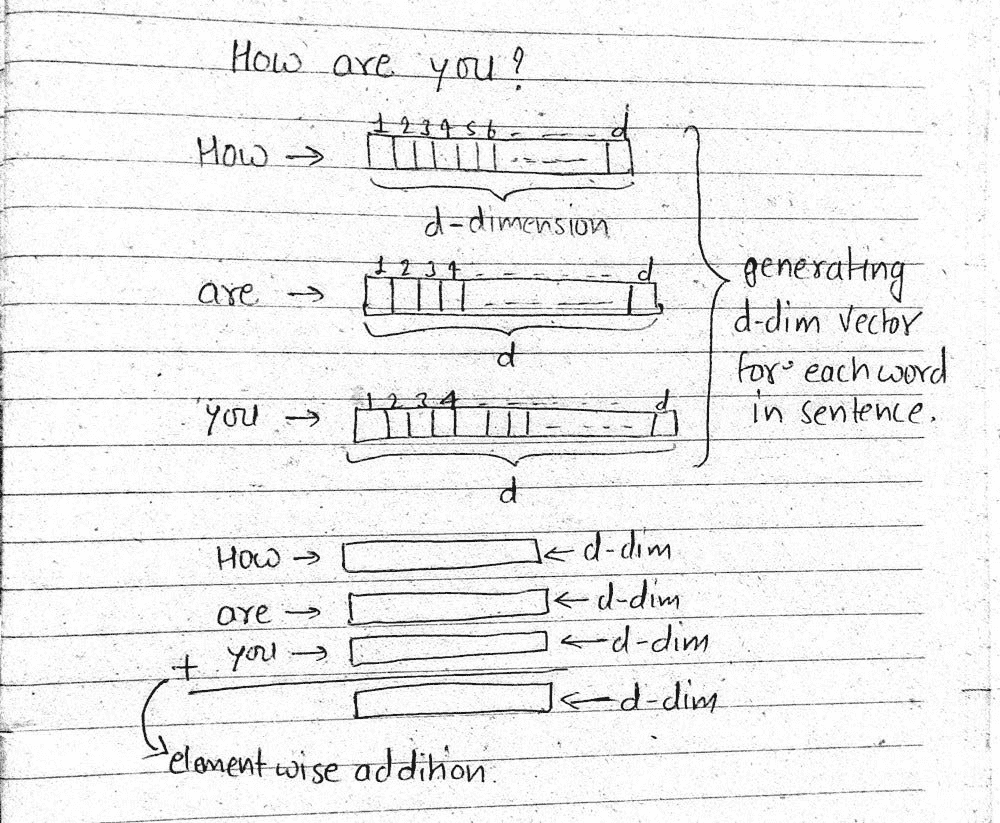 How are you?
1 2 3 4 5 6 - - - - - d
How →
d-dimension
1 2 3 4 - - - - - - d
are →
d
1 2 3 4 - - - - - - d
you →
d
generating
d-dim vector
for each word
in sentence.
How → ← d-dim
are → ← d-dim
+ you → ← d-dim
← d-dim
elementwise addition.